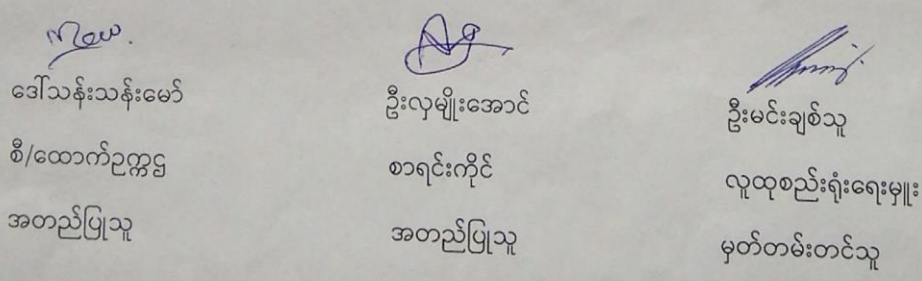 ဒေါ်သန်းသန်းမော်
စီ/ထောက်ဥက္ကဋ္ဌ
အတည်ပြုသူ
ဦးလှမျိုးအောင်
စာရင်းကိုင်
အတည်ပြုသူ
ဦးမင်းချစ်သူ
လူထုစည်းရုံးရေးမှူး
မှတ်တမ်းတင်သူ